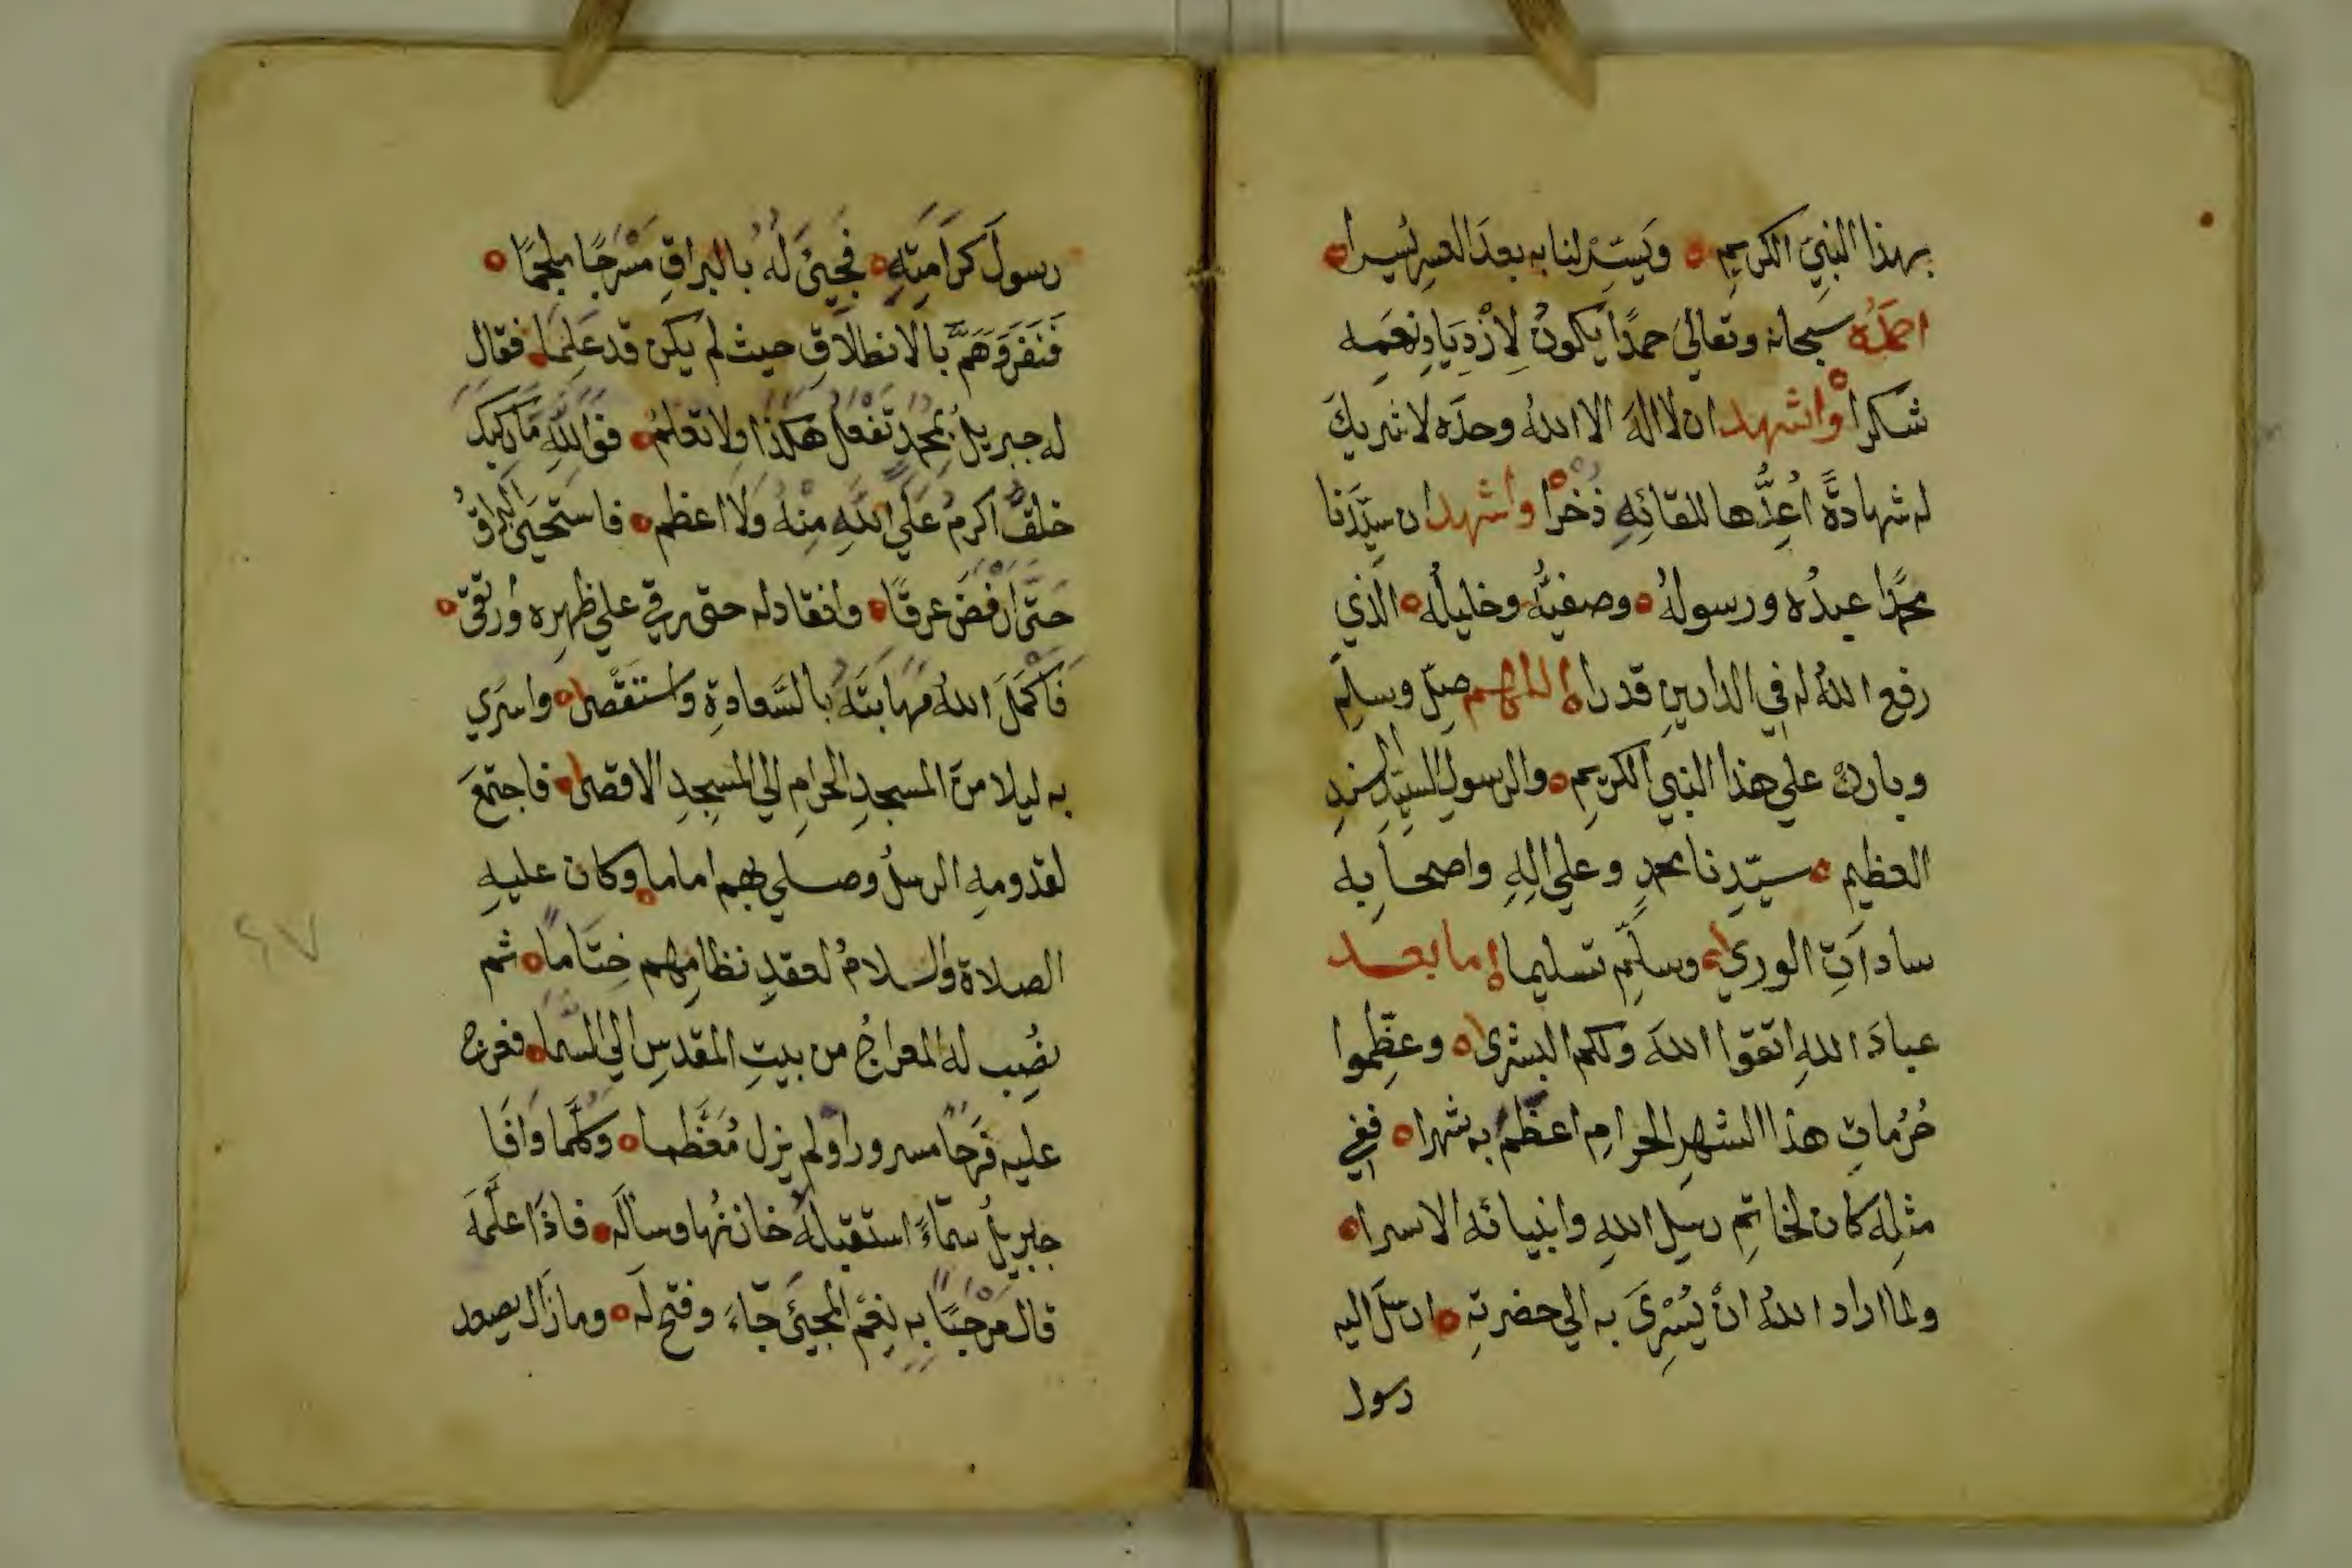 بهذا النبيِ الكريمِ ه ويَسَّرْ لنا به بعدَ العسرِ يُسرا ه
احمَدُه سبحانه وتعالي حمدًا يكونُ لِازْدِيَادِ نعَمِه
شكرا ه وْاشهد ان لا اله الا اللهُ وحدَه لا شريكَ
له شهادةً اُعِدُّها للقائِهِ ذُخْرًا ه واشهد ان سيِّدَنا
محمدًا عبدُه ورسولهُ ه وصفيُّه وخليلُه ه الذي
رفع اللهُ له في الدارينِ قدرا ه اللهم صلِّ وسلِّم
وبارِكْ علي هذا النبي الكريمِ ه والرسولِ السيِّدِ السندِ
العظيم ه سيّدِنا محمدٍ وعلي الِهِ واصحابِه
ساداتِ الوري ه وسلِّم تسليما ه اما بعد
عبادَ اللهِ اتقوا اللهَ ولكم البشري ه وعظِّموا
حُرُماتِ هذا الشهرِ الحرامِ اعظمْ به شهرا ه ففي
مثلِه كان لخاتِمِ رسلِ اللهِ وانبيائه الاسرا ه
ولما اراد اللهُ انْ يُسْرِيَ به الي حضرتِهِ ه ارسلَ اليه
رسول
رسولَ كرَامَتِهِ ه فجيئَ لَهُ بالبراقِ مُسْرَجًا ملجمًا ه
فَنَفَرَ وَهَمَّ بالانطلَاقِ حيث لم يكن قد عَلِمَا ه فقال
له جبريلُ بمحمدٍ تَفْعل هكذا ولا تعلمُ ه فوَاللهِ مَا ركبكَ
خلقٌ اكرمُ عَلَي اللهِ مِنْهُ ولا اعظم ه فاستحيَي البراقُ
حَتَّي ارْفَضَّ عرقًا ه وانقاد له حتي رقي علي ظهرِه وَارتقي ه
فَاَكْمَلَ اللهُ مهابتَهُ بالسَّعادةِ واستَقْصي ه واسرَي
به ليلا من المسجدِ الحرامِ الي المسجدِ الاقصي ه فاجتمَعَ
لقدومِهِ الرسلُ وصلي بهم اماما ه وكان عليهِ
الصلاة والسلامُ لعقدِ نظامِهم خِتَامًا ه ثم
نُصِب له المعراجُ من بيتِ المقدسِ الي السَّما ه فعرج
عليه فَرِحًا مسرورا ولم يزل مُعَظَّما ه وكُلَّما وَافَا
جبريلُ سمَاءً استقبلَهُ خازنُها وسألَه ه فاذَا اعلَمَهُ
قال مَرْحَبًا بِهِ نِعْمَ المجيئُ جَاءَ وفتح لَه ه وما زَال يصعد
٤٧